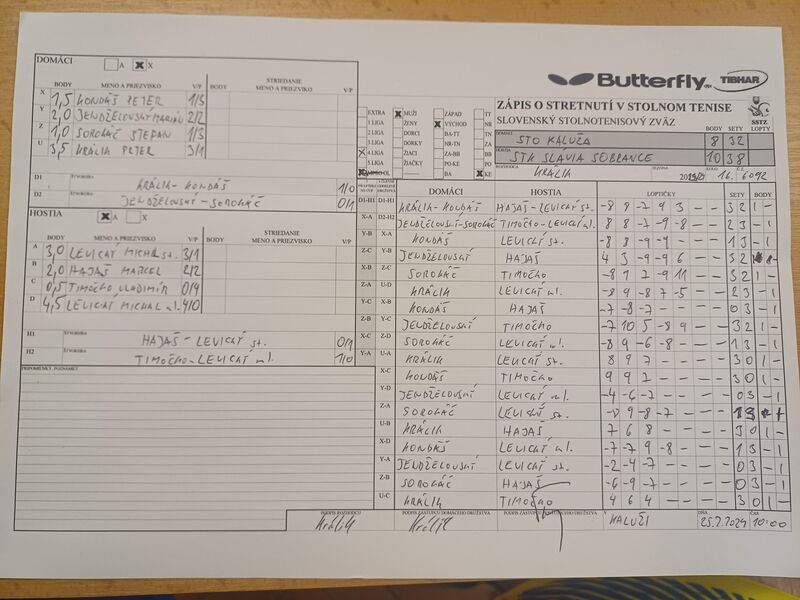 Butterfly TIBHAR
ZÁPIS O STRETNUTÍ V STOLNOM TENISE
SLOVENSKÝ STOLNOTENISOVÝ ZVÄZ
SSTZ
DOMÁCI A X
BODY MENO A PRIEZVISKO V/P BODY STRIEDANIE MENO A PRIEZVISKO V/P
X 1,5 KONDÁŠ PETER 1/3
Y 2,0 JENDŽELOVSKÝ MARIÁN 2/2
Z 1,0 SOROKÁČ ŠTEPAN 1/3
U 3,5 KRÁLIK PETER 3/1
D1 Štvorhra KRÁLIK-KONDÁŠ 1/0
D2 JENDŽELOVSKÝ-SOROKÁČ 0/1
HOSTIA A X
BODY MENO A PRIEZVISKO V/P BODY STRIEDANIE MENO A PRIEZVISKO V/P
A 3,0 LEVICKÝ MICHAL st. 3/1
B 2,0 HAJAŠ MARCEL 2/2
C 0,5 TIMOČKO VLADIMÍR 0/4
D 4,5 LEVICKÝ MICHAL ml. 4/0
H1 Štvorhra HAJAŠ-LEVICKÝ st. 0/1
H2 TIMOČKO-LEVICKÝ ml. 1/0
PRIPOMIENKY, POZNÁMKY
EXTRA MUŽI ZÁPAD TT
1.LIGA ŽENY VÝCHOD NR
2.LIGA DORCI BA-TT TN
3.LIGA DORKY NR-TN ZA
4.LIGA ŽIACI ZA-BB BB
5.LIGA ŽIAČKY PO-KE PO
BA KE
DOMÁCI STO KALUŽA BODY 8 SETY 32 LOPTY
HOSTIA STK SLAVIA SOBRANCE 10 38
ROZHODCA KRÁLIK SEZÓNA KOLO 16.
DOMÁCI HOSTIA LOPTIČKY SETY BODY
D1-H1 D1-H1 KRÁLIK-KONDÁŠ HAJAŠ-LEVICKÝ st. -8 8 -7 9 3 - - 3 2 1 -
X-A D2-H2 JENDŽELOVSKÝ-SOROKÁČ TIMOČKO-LEVICKÝ ml. 8 8 -7 -9 -8 - - 2 3 - 1
Y-B X-A KONDÁŠ LEVICKÝ st. -8 8 -9 -9 - - - 1 3 - 1
Z-C Y-B JENDŽELOVSKÝ HAJAŠ 4 3 -9 -9 6 - - 3 2
X-B Z-C SOROKÁČ TIMOČKO -8 1 7 -9 11 - - 3 2 1 -
Z-A U-D KRÁLIK LEVICKÝ ml. -8 9 -8 7 -5 - - 2 3 - 1
Y-C X-B KONDÁŠ HAJAŠ -7 -8 -7 - - - - 0 3 - 1
Z-B Y-C JENDŽELOVSKÝ TIMOČKO -7 10 5 -8 9 - - 3 2 1 -
X-C Z-D SOROKÁČ LEVICKÝ ml. -8 9 -6 -8 - - - 1 3 - 1
Y-A U-A KRÁLIK LEVICKÝ st. 8 9 7 - - - - 3 0 1 -
X-C KONDÁŠ TIMOČKO 9 9 7 - - - - 3 0 1 -
Y-D JENDŽELOVSKÝ LEVICKÝ ml. -4 -6 -7 - - - - 0 3 - 1
Z-A SOROKÁČ LEVICKÝ st. 9 -8 -7 - - - 1 3
U-B KRÁLIK HAJAŠ 7 6 8 - - - - 3 0 1 -
X-D KONDÁŠ LEVICKÝ ml. -7 -7 9 -8 - - - 1 3 - 1
Y-A JENDŽELOVSKÝ LEVICKÝ st. -2 -4 -7 - - - - 0 3 - 1
Z-B SOROKÁČ HAJAŠ -6 -9 -7 - - - - 0 3 - 1
U-C KRÁLIK TIMOČKO 4 6 4 - - - - 3 0 1 -
PODPIS ROZHODCU PODPIS ZÁSTUPCU DOMÁCEHO DRUŽSTVA PODPIS ZÁSTUPCU HOSŤUJÚCEHO DRUŽSTVA V DŇA ČAS
Králik Králik KALUŽI 25.2.2024 10:00